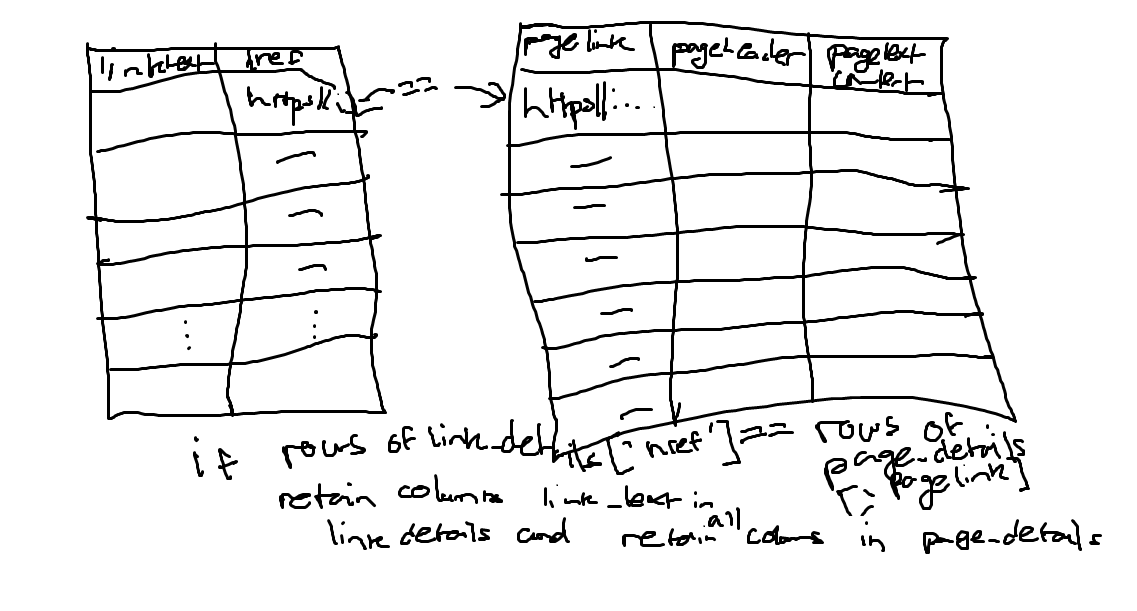 linktext href
https//
==
page link page header page text content
https//...
if rows of link_details['href'] == rows of page_details['pagelink']
retain columns link_text in
link details and retain all colums in page_details